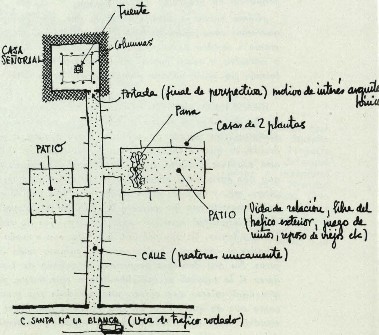 Fuente
Columnas
CASA
SEÑORIAL
Portada (final de perspectiva) motivo de interés arquitectónico
Parra
Casas de 2 plantas
PATIO
PATIO
(Vida de relación, libre del
tráfico exterior, juego de
niños, reposo de viejos etc)
CALLE (peatones unicamente)
C. SANTA Mª LA BLANCA (Via de tráfico rodado)